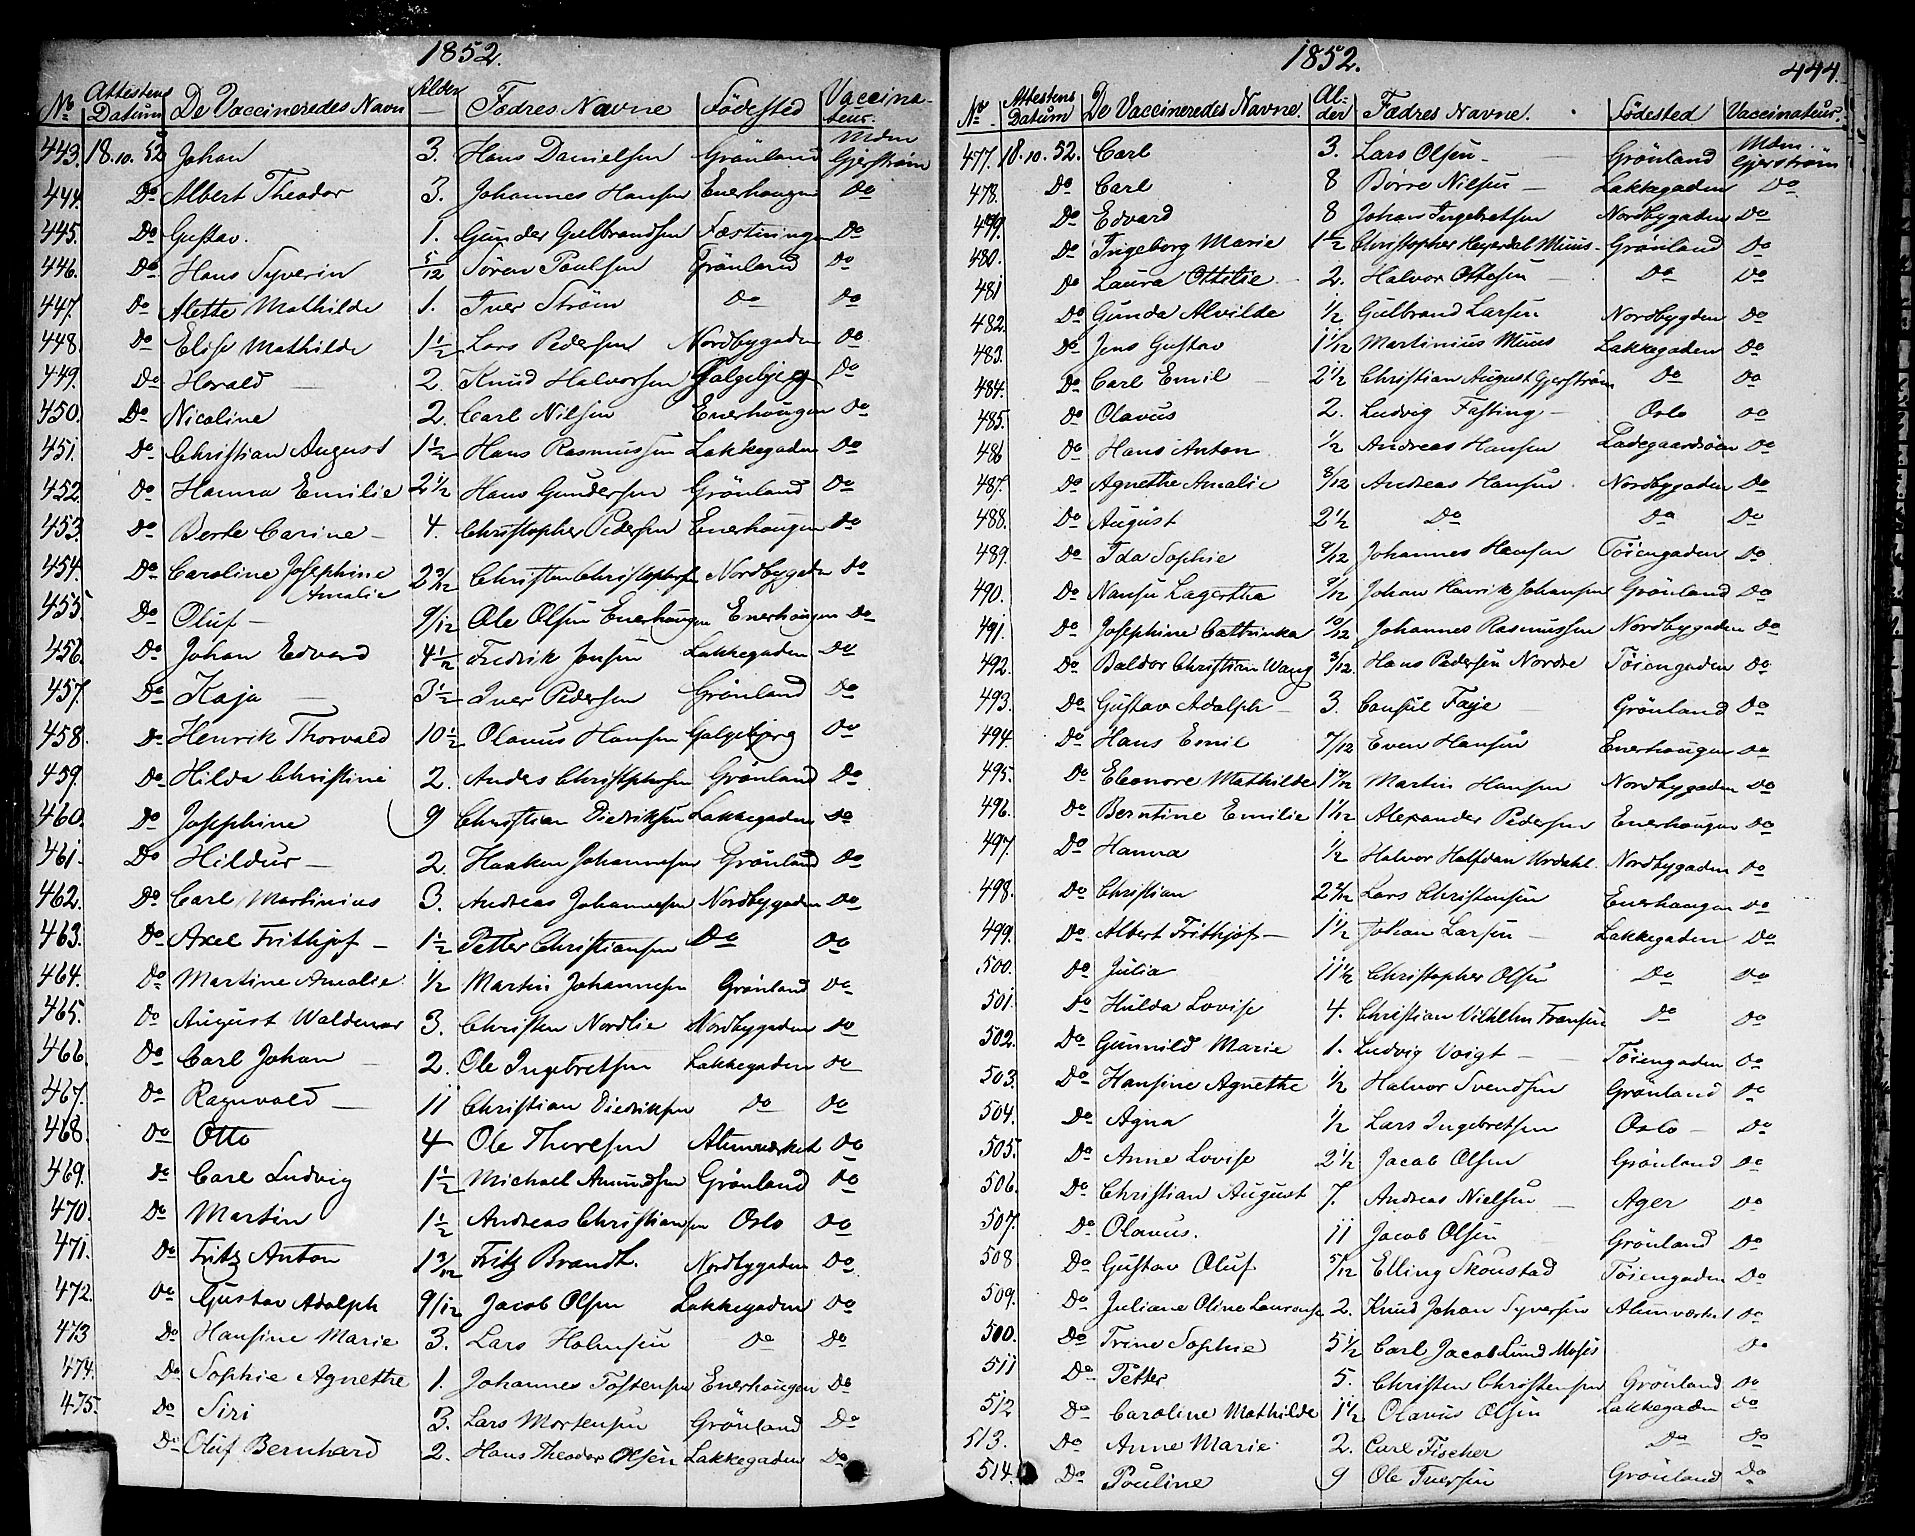 1852.
No Attestens Datum De Vaccineredes Navn Alder Fædres Navne Födested Vaccinateur.
443. 18.10.52 Johan 3. Hans Danielsen Grönland Mdm Gjerström
444. Do Albert Theodor 3. Johannes Hansen Enerhaugen Do
445. Do Gustav. 1. Gunder Gulbrandsen Fæstningen Do
446. Do Hans Syverin 5/12 Sören Poulsen Grönland Do
447. Do Alette Mathilde 1. Iver Ström Do Do
448. Do Elise Mathilde 1 1/2 Lars Pedersen Nordbygaden Do
449. Do Harald 2. Knud Halvorsen Galgebjerg Do
450. Do Nicoline 2. Carl Nilsen Enerhougen Do
451. Do Christian August 1 1/2 Hans Rasmussen Lakkegaden Do
452. Do Hanna Emilie 2 1/2 Hans Gundersen Grönland Do
453. Do Berte Carine 4. Christopher Pedersen Enerhaugen Do
454. Do Caroline Josephine Amalie 2 3/12 Christen Christophersen Nordbygaden Do
455. Do Oluf 9/12 Ole Olsen Enerhougen Enerhaugen Do
456. Do Johan Edvard 4 1/2 Fredrik Jensen Lakkegaden Do
457. Do Kaja 3 1/2 Iver Pedersen Grönland Do
458. Do Henrik Thorvald 10 1/2 Olaus Hansen Galgebjerg Do
459. Do Hilda Christine 2. Andes Christophersen Grönland Do
460. Do Josephine 9 Christian Diedriksen Lakkegaden Do
461. Do Hildur 2. Haaken Johannesen Grönland Do
462. Do Carl Martinius 3. Andreas Johannesen Nordbygaden Do
463. Do Axel Frithjof 1 1/2 Petter Christiansen Do Do
464. Do Martine Amalie 1/2 Martin Johannesen Grönland Do
465. Do August Waldemar 3. Christen Nordlie Nordbygaden Do
466. Do Carl Johan 2. Ole Ingebretsen Lakkegaden Do
467. Do Ragnvald 11 Christian Diedriksen Do Do
468. Do Otto 4 Ole Thoresen Alunværket Do
469. Do Carl Ludvig 1 1/2 Michael Amundsen Grönland Do
470. Do Martin 1 1/2 Andreas Christiansen Oslo Do
471. Do Fritz Anton 1 3/12 Fritz Brandt. Nordbygaden Do
472. Do Gustav Adolph 9/12 Jacob Olsen Lakkegaden Do
473 Do Hansine Marie 3. Lars Holmsen Do Do
474. Do Sophie Agnethe 1. Johannes Tostensen Enerhougen Do
475. Do Siri 3. Lars Mortensen Grönland Do
Do Oluf Bernhard 2. Hans Theodor Olsen Lakkegaden Do
1852. 444.
No Attestens Datum De Vaccineredes Navne. Alder Fædres Navne. Födested Vaccinateur.
477. 18.10.52. Carl 3. Lars Olsen Grönland Mdm. Gjerström
478. Do Carl 8 Börre Nilsen Lakkegaden Do
499. Do Edvard 8 Johan Ingebretsen Nordbygaden Do
480. Do Ingeborg Marie 1 1/2 Christopher Heyerdal Muus Grönland Do
481 Do Laura Ottilie 2. Halvor Ottesen Do Do
482. Do Gunda Alvilde 1/2 Gulbrand Larsen Nordbygden Do
483. Do Jens Gustav 1 1/12 Martinius Muus Lakkegaden Do
484. Do Carl Emil 2 1/2 Christian August Gjerström Do Do
485. Do Olavus 2. Ludvig Fasting Oslo Do
486 Do Hans Anton 1/2 Andreas Hansen Ladegaardsöen Do
487. Do Agnethe Amalie 8/12 Andreas Hansen Nordbygaden Do
488. Do August 2 1/2 Do Do Do
489. Do Ida Sophie 9/12 Johannes Hansen Töiengaden Do
490. Do Nansen Lagertha 9/12 Johan Henrik Johansen Grönland Do
491. Do Josephine Cathinka 10/12 Johannes Rasmussen Nordbygaden Do
492. Do Baldor Christian Wang 3/12 Hans Pedersen Nordre Töiengaden Do
493. Do Gustav Adolph 3. Consul Faye Grönland Do
494 Do Hans Emil 7/12 Even Hansen Enerhougen Do
495. Do Eleonore Mathilde 1 9/12 Martin Hansen Nordbygaden Do
496. Do Berntine Emilie 1 1/12 Alexander Pedersen Enerhougen Do
497. Do Hanna 1/2 Halvor Halfdan Urdahl Nordbygaden Do
498. Do Christian 2 2/12 Lars Christensen Enerhaugen Do
499. Do Albert Frithjof 1 1/2 Johan Larsen Lakkegaden Do
500. Do Julia 11 1/2 Christopher Olsen Do Do
501. Do Hulda Lovise 4. Christian Vilhelm Fransen Do Do
502. Do Gunnild Marie 1. Ludvig Voigt Töiengaden Do
503. Do Hansine Agnethe 1/2 Halvor Svendsen Grönland Do
504. Do Agna 1/2 Lars Ingebretsen Oslo Do
505. Do Anne Lovise 2 1/2 Jacob Olsen Grönland Do
506. Do Christian August 7. Andreas Nielsen Ager Do
507. Do Olavus. 11 Jacob Olsen Grönland Do
508 Do Gustav Oluf 5/12 Elling Skoustad Töiengaden Do
509. Do Juliane Oline Laurense 2. Knud Johan Syversen Alunværket Do
500. Do Trine Sophie 5 1/2 Carl Jacob Lund Moses Do
511 Do Petter 5. Christen Christensen Grönland Do
512 Do Caroline Mathilde 1 1/2 Olavus Olsen Lakkegaden Do
513. Do Anne Marie 2. Carl Fischer Do Do
514. Do Pouline 9 Ole Iversen Grönland Do